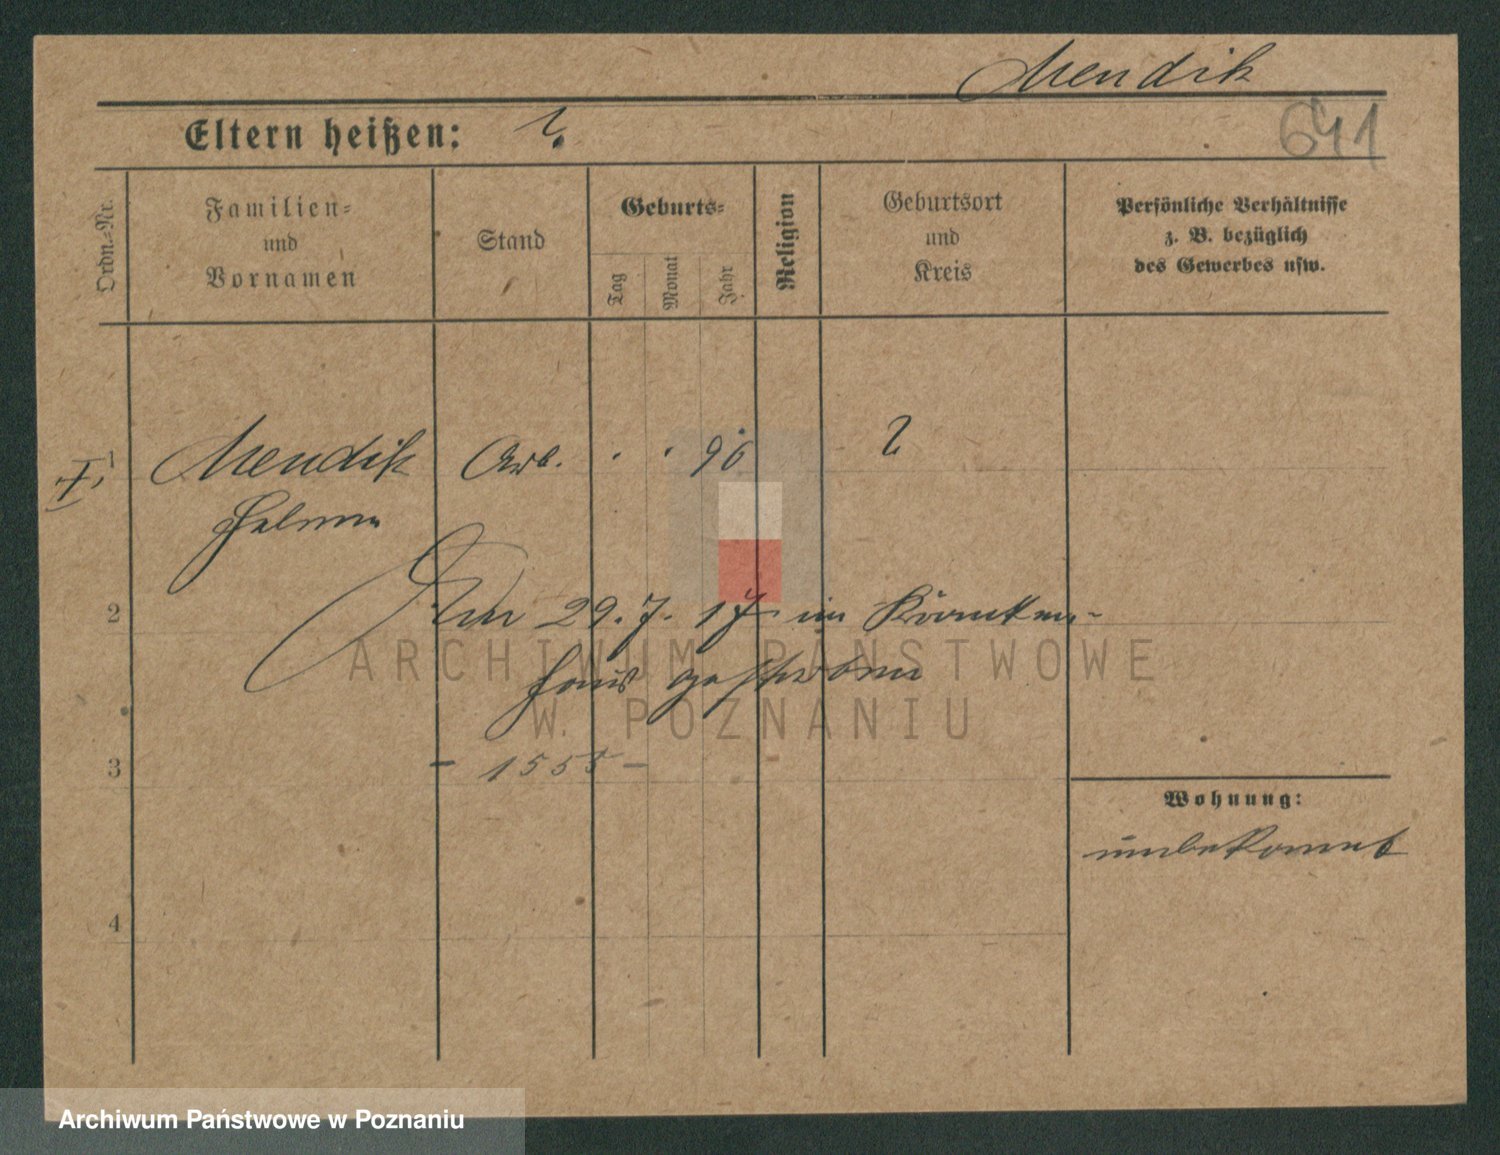 Mendik
Eltern heißen: ?
641
Ordn.-Nr.
Familien-
und
Vornamen
Stand
Geburts-
Tag
Monat
Jahr
Religion
Geburtsort
und
Kreis
Persönliche Verhältnisse
z. B. bezüglich
des Gewerbes usw.
1
Mendik Arb. . . 96 ?
2
Am 29.7.17 im Kranken-
haus gestorben
3
- 1555 -
Wohnung:
unbekannt
4
ARCHIWUM PAŃSTWOWE
W POZNANIU
Archiwum Państwowe w Poznaniu